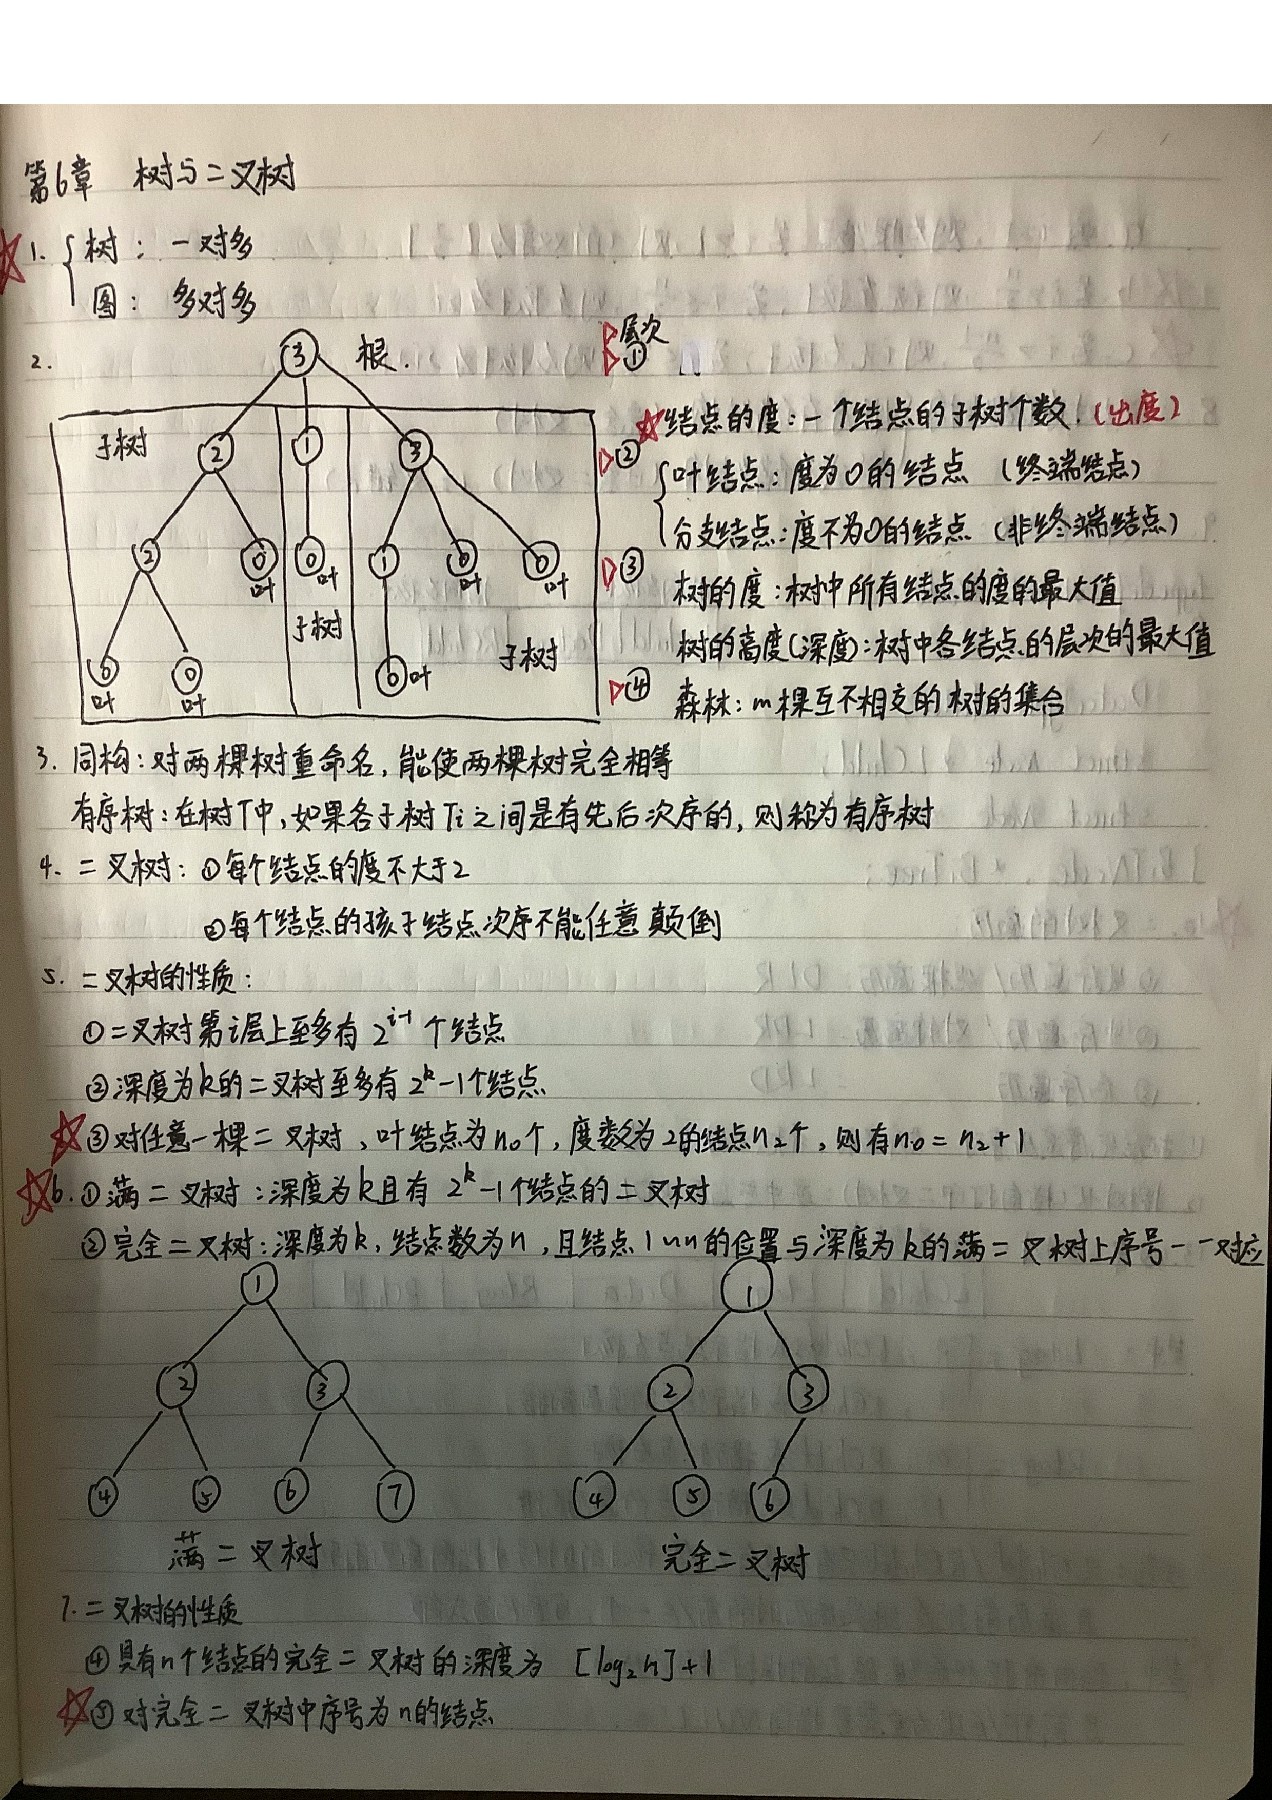 第6章 树与二叉树
1. 树：一对多
图：多对多
2. ③ 根. 层次
①
☆结点的度：一个结点的子树个数.（出度）
子树 ② ① ③ ②
叶结点：度为0的结点 （终端结点）
分支结点：度不为0的结点 （非终端结点）
② 0 0 ① 0 0 ③
叶 叶 叶 叶
树的度：树中所有结点的度的最大值
子树
树的高度(深度)：树中各结点的层次的最大值
子树
0 0 0 叶 ④
叶 叶
森林：m棵互不相交的树的集合
3. 同构：对两棵树重命名，能使两棵树完全相等
有序树：在树T中，如果各子树Ti之间是有先后次序的，则称为有序树
4. 二叉树：①每个结点的度不大于2
②每个结点的孩子结点次序不能任意颠倒
5. 二叉树的性质：
①二叉树第i层上至多有 2^{i-1} 个结点
②深度为k的二叉树至多有 2^k-1个结点
☆③对任意一棵二叉树，叶结点为n₀个，度数为2的结点n₂个，则有n₀=n₂+1
☆6. ①满二叉树：深度为k且有 2^k-1个结点的二叉树
②完全二叉树：深度为k，结点数为n，且结点1~n的位置与深度为k的满二叉树上序号一一对应
① ①
② ③ ② ③
④ ⑤ ⑥ ⑦ ④ ⑤ ⑥
满二叉树 完全二叉树
7. 二叉树的性质
④具有n个结点的完全二叉树的深度为 [log₂n]+1
☆⑤对完全二叉树中序号为n的结点